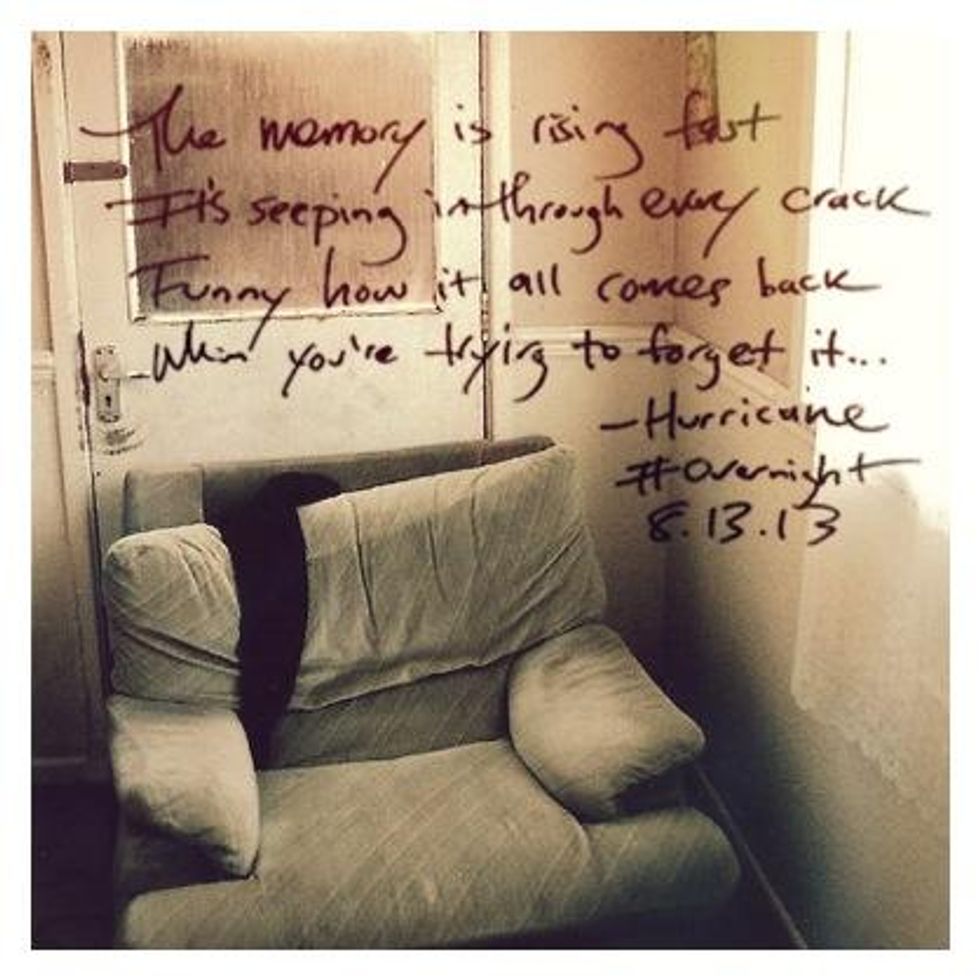 The memory is rising fast
It's seeping in through every crack
Funny how it all comes back
When you're trying to forget it...
-Hurricaine
#Overnight
8.13.13